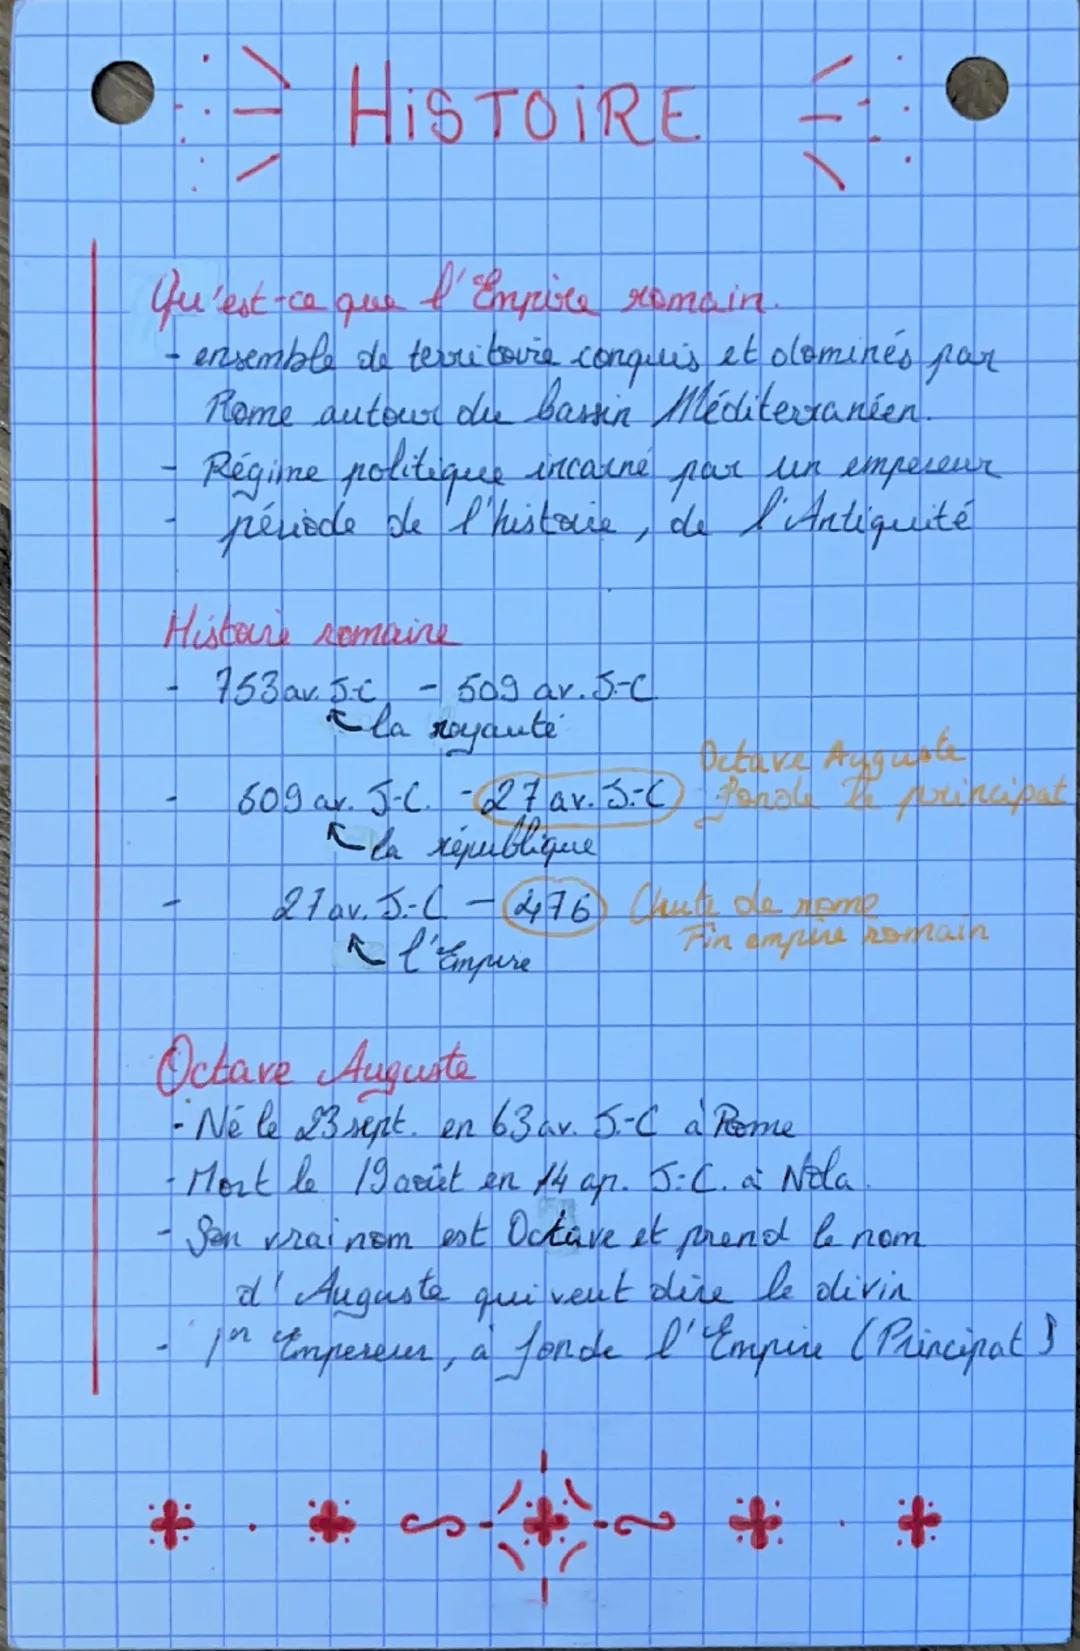 HiSTOiRE
Qu'est-ce que l'Empire romain.
- ensemble de territoire conquis et dominés par
Rome autour du bassin Méditerranéen.
- Régime politique incarné par un empereur
- période de l'histoire, de l'Antiquité
Histoire romaine
- 753 av. J-C - 509 av. J-C.
la royauté
Octave Auguste
- 509 av. J-C. - 27 av. J-C fonde le principat
la république
- 27 av. J-C - 476 Chute de rome
Fin empire romain
l'Empire
Octave Auguste
- Né le 23 sept. en 63 av. J-C à Rome
- Mort le 19 août en 14 ap. J-C. à Nola.
- Son vrai nom est Octave et prend le nom
d'Auguste qui veut dire le divin
- 1er Empereur, a fonde l'Empire (Principat)